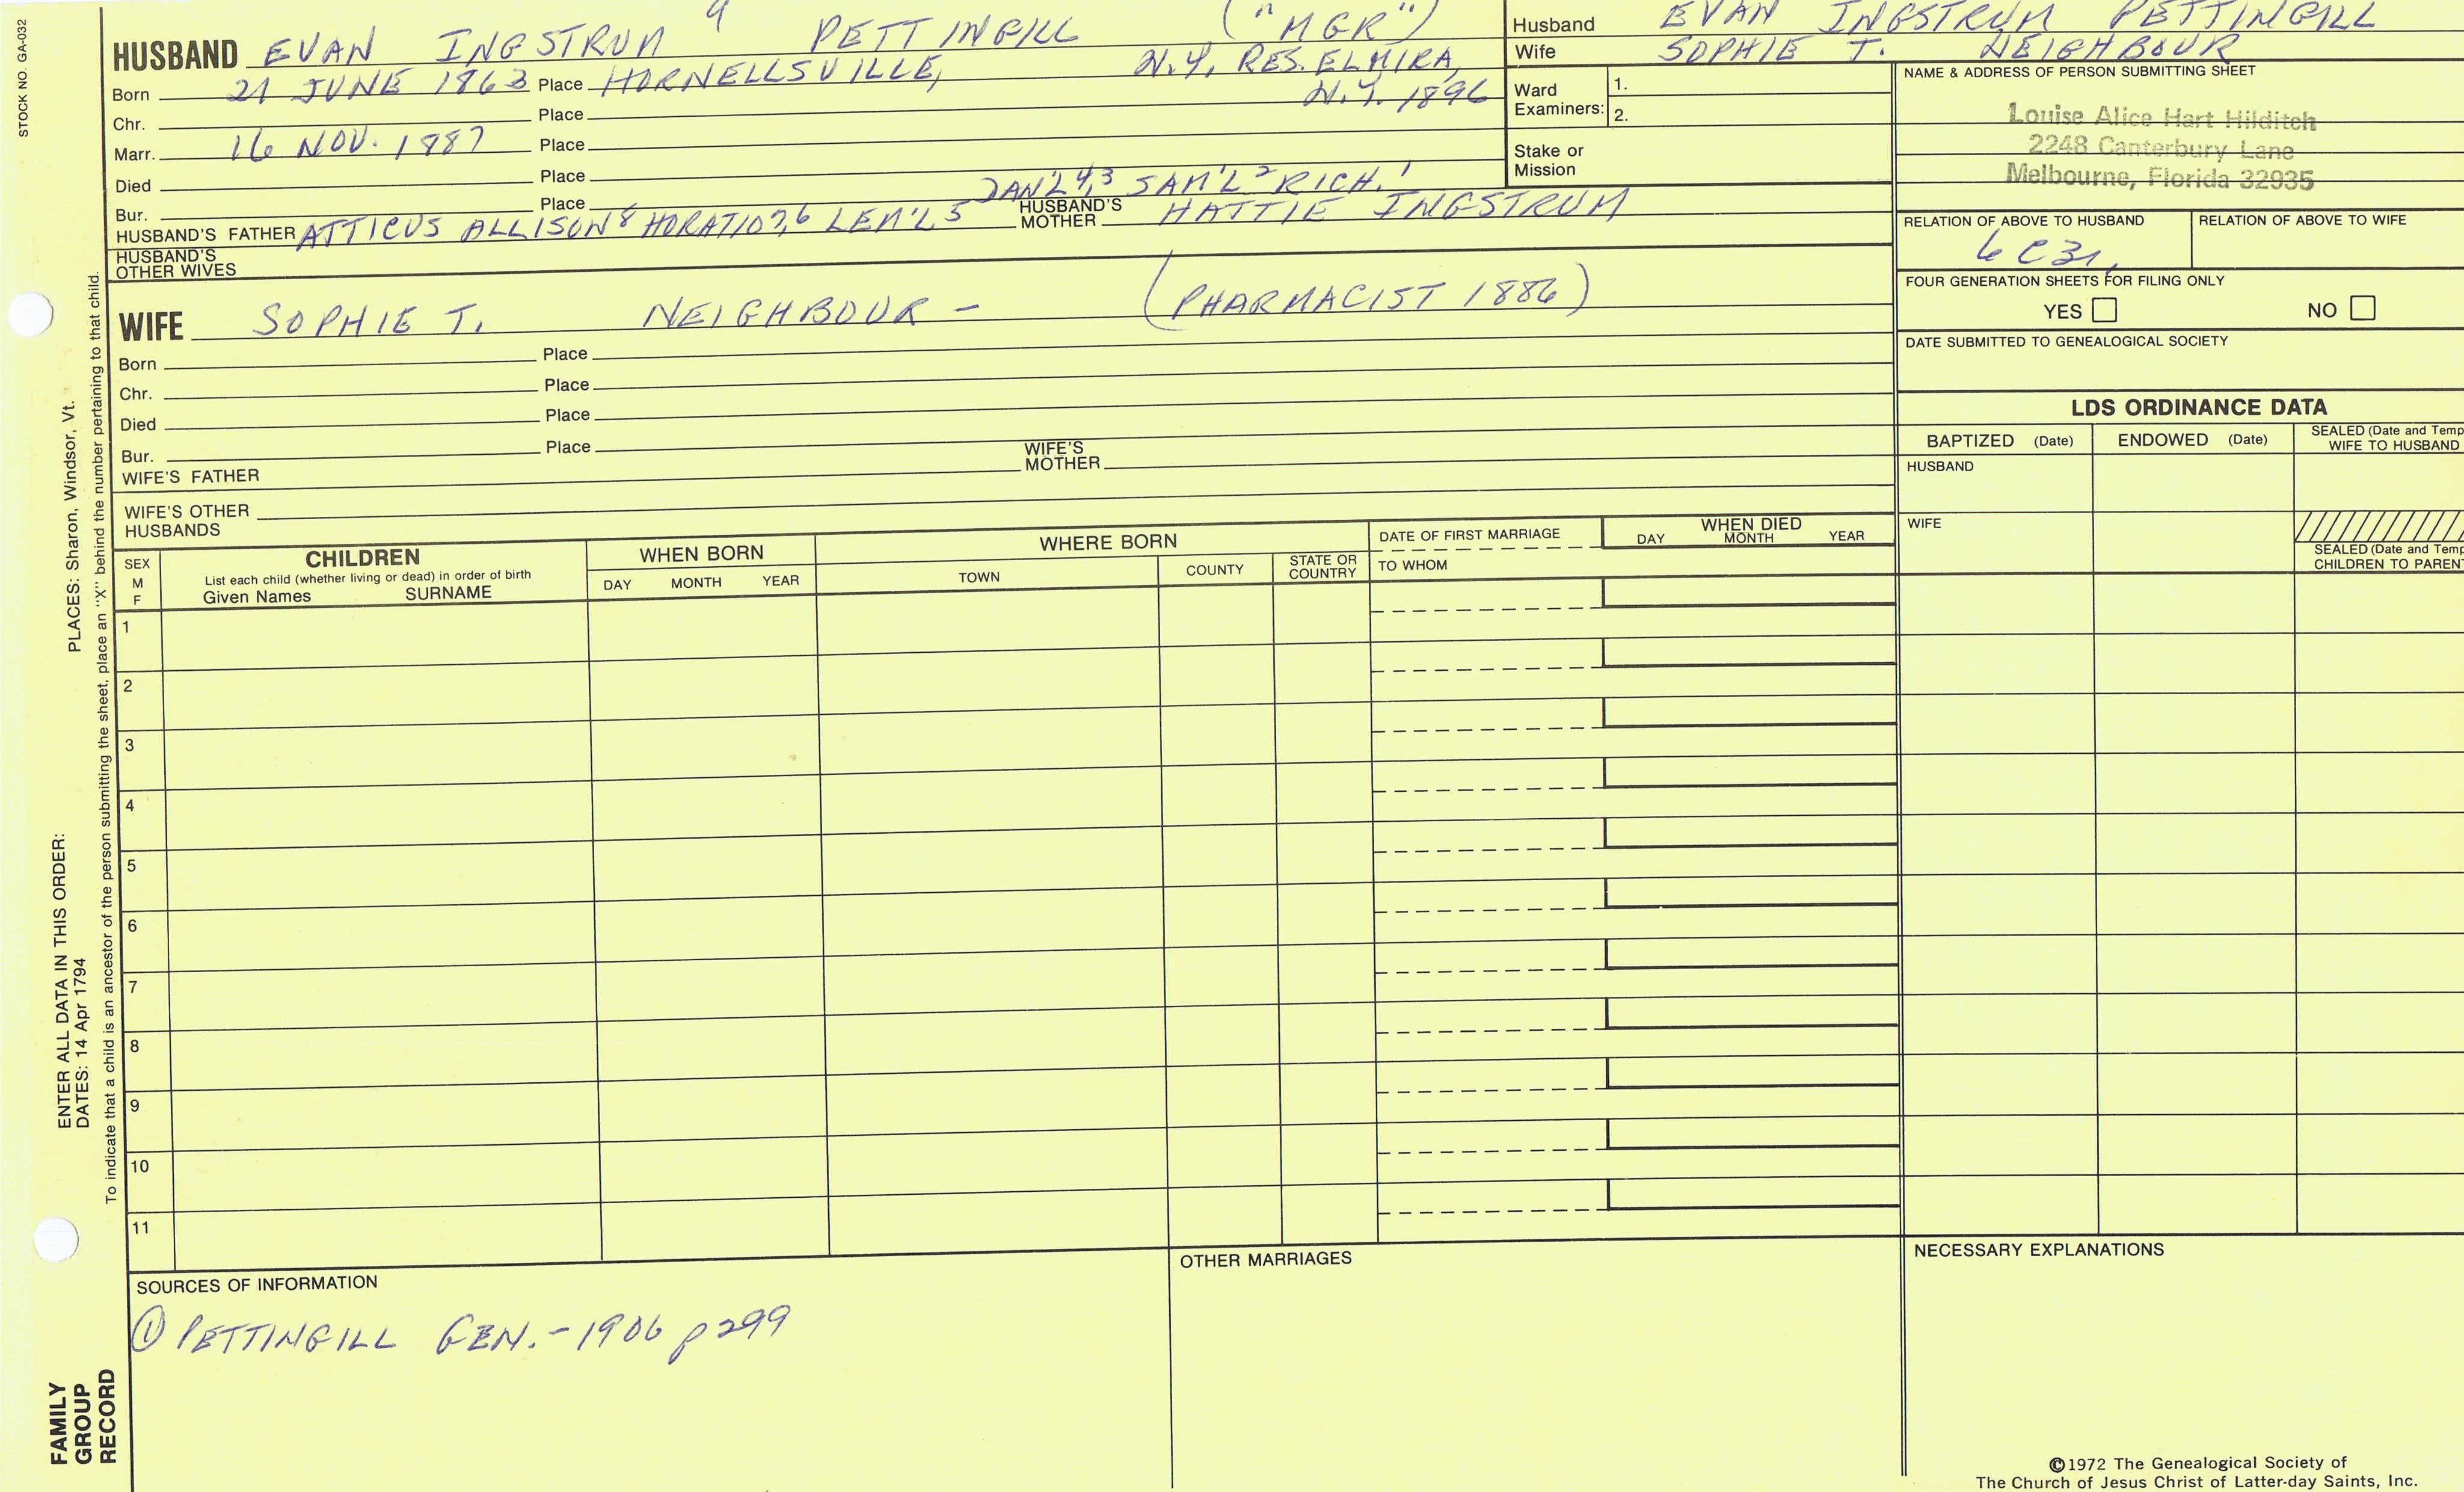 STOCK NO. GA-032
HUSBAND EVAN INGSTRUM 9 PETTINGILL ("MGR")
Born 21 JUNE 1863 Place HORNELLSVILLE, N.Y. RES. ELMIRA,
N.Y. 1896
Chr. Place
Marr. 16 NOV. 1887 Place
Died Place
Bur. Place
DAN'L 4,3 SAM'L 2 RICH. 1
HUSBAND'S FATHER ATTICUS ALLISON 8 HORATIO 7,6 LEM'L 5 HUSBAND'S MOTHER HATTIE INGSTRUM
HUSBAND'S OTHER WIVES
WIFE SOPHIE T. NEIGHBOUR - (PHARMACIST 1886)
Born Place
Chr. Place
Died Place
Bur. Place
WIFE'S FATHER WIFE'S MOTHER
WIFE'S OTHER HUSBANDS
Husband EVAN INGSTRUM PETTINGILL
Wife SOPHIE T. NEIGHBOUR
Ward Examiners: 1.
2.
Stake or Mission
NAME & ADDRESS OF PERSON SUBMITTING SHEET
Louise Alice Hart Hilditch
2248 Canterbury Lane
Melbourne, Florida 32935
RELATION OF ABOVE TO HUSBAND RELATION OF ABOVE TO WIFE
FOUR GENERATION SHEETS FOR FILING ONLY
YES NO
DATE SUBMITTED TO GENEALOGICAL SOCIETY
LDS ORDINANCE DATA
BAPTIZED (Date) ENDOWED (Date) SEALED (Date and Temp
WIFE TO HUSBAND
HUSBAND
WIFE
SEALED (Date and Temp
CHILDREN TO PARENT
SEX M F
CHILDREN
List each child (whether living or dead) in order of birth
Given Names SURNAME
WHEN BORN
DAY MONTH YEAR
WHERE BORN
TOWN COUNTY STATE OR COUNTRY
DATE OF FIRST MARRIAGE
TO WHOM
WHEN DIED
DAY MONTH YEAR
1
2
3
4
5
6
7
8
9
10
11
SOURCES OF INFORMATION
① PETTINGILL GEN. - 1906 p 299
OTHER MARRIAGES
NECESSARY EXPLANATIONS
©1972 The Genealogical Society of
The Church of Jesus Christ of Latter-day Saints, Inc.
ENTER ALL DATA IN THIS ORDER:
DATES: 14 Apr 1794
PLACES: Sharon, Windsor, Vt.
To indicate that a child is an ancestor of the person submitting the sheet, place an "X" behind the number pertaining to that child.
FAMILY
GROUP
RECORD